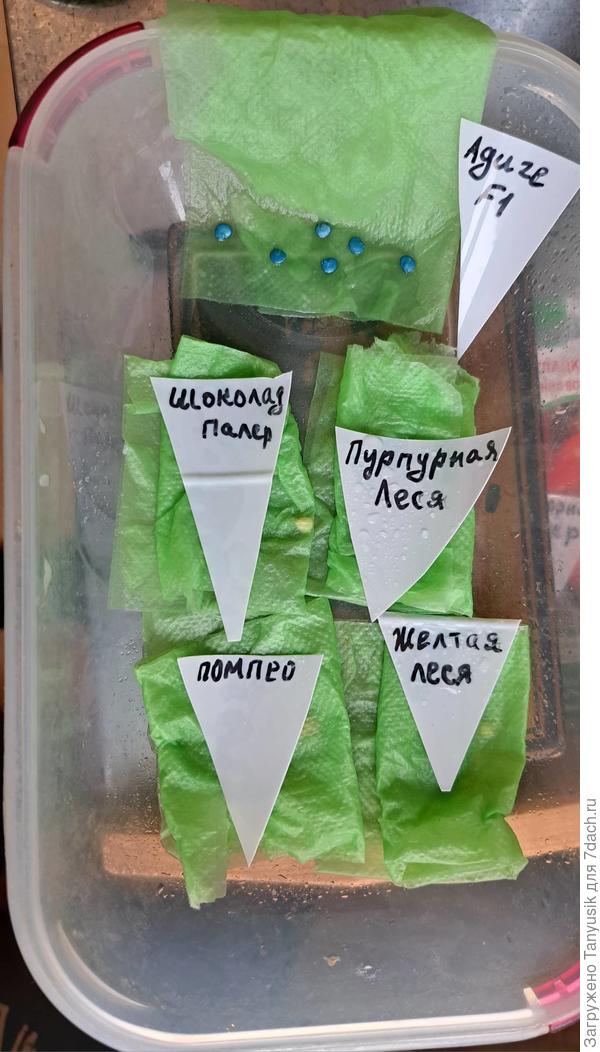 Адиге
F1
Шоколад
Палер
Пурпурная
Леся
ПОМПЕО
Желтая
леся
Загружено Tanyusik для 7dach.ru